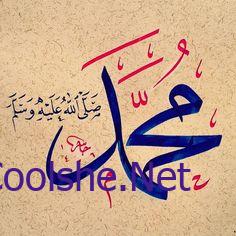 محمد
صَلَّى اللهُ عَلَيْهِ وَسَلَّمَ
Coolshe.Net